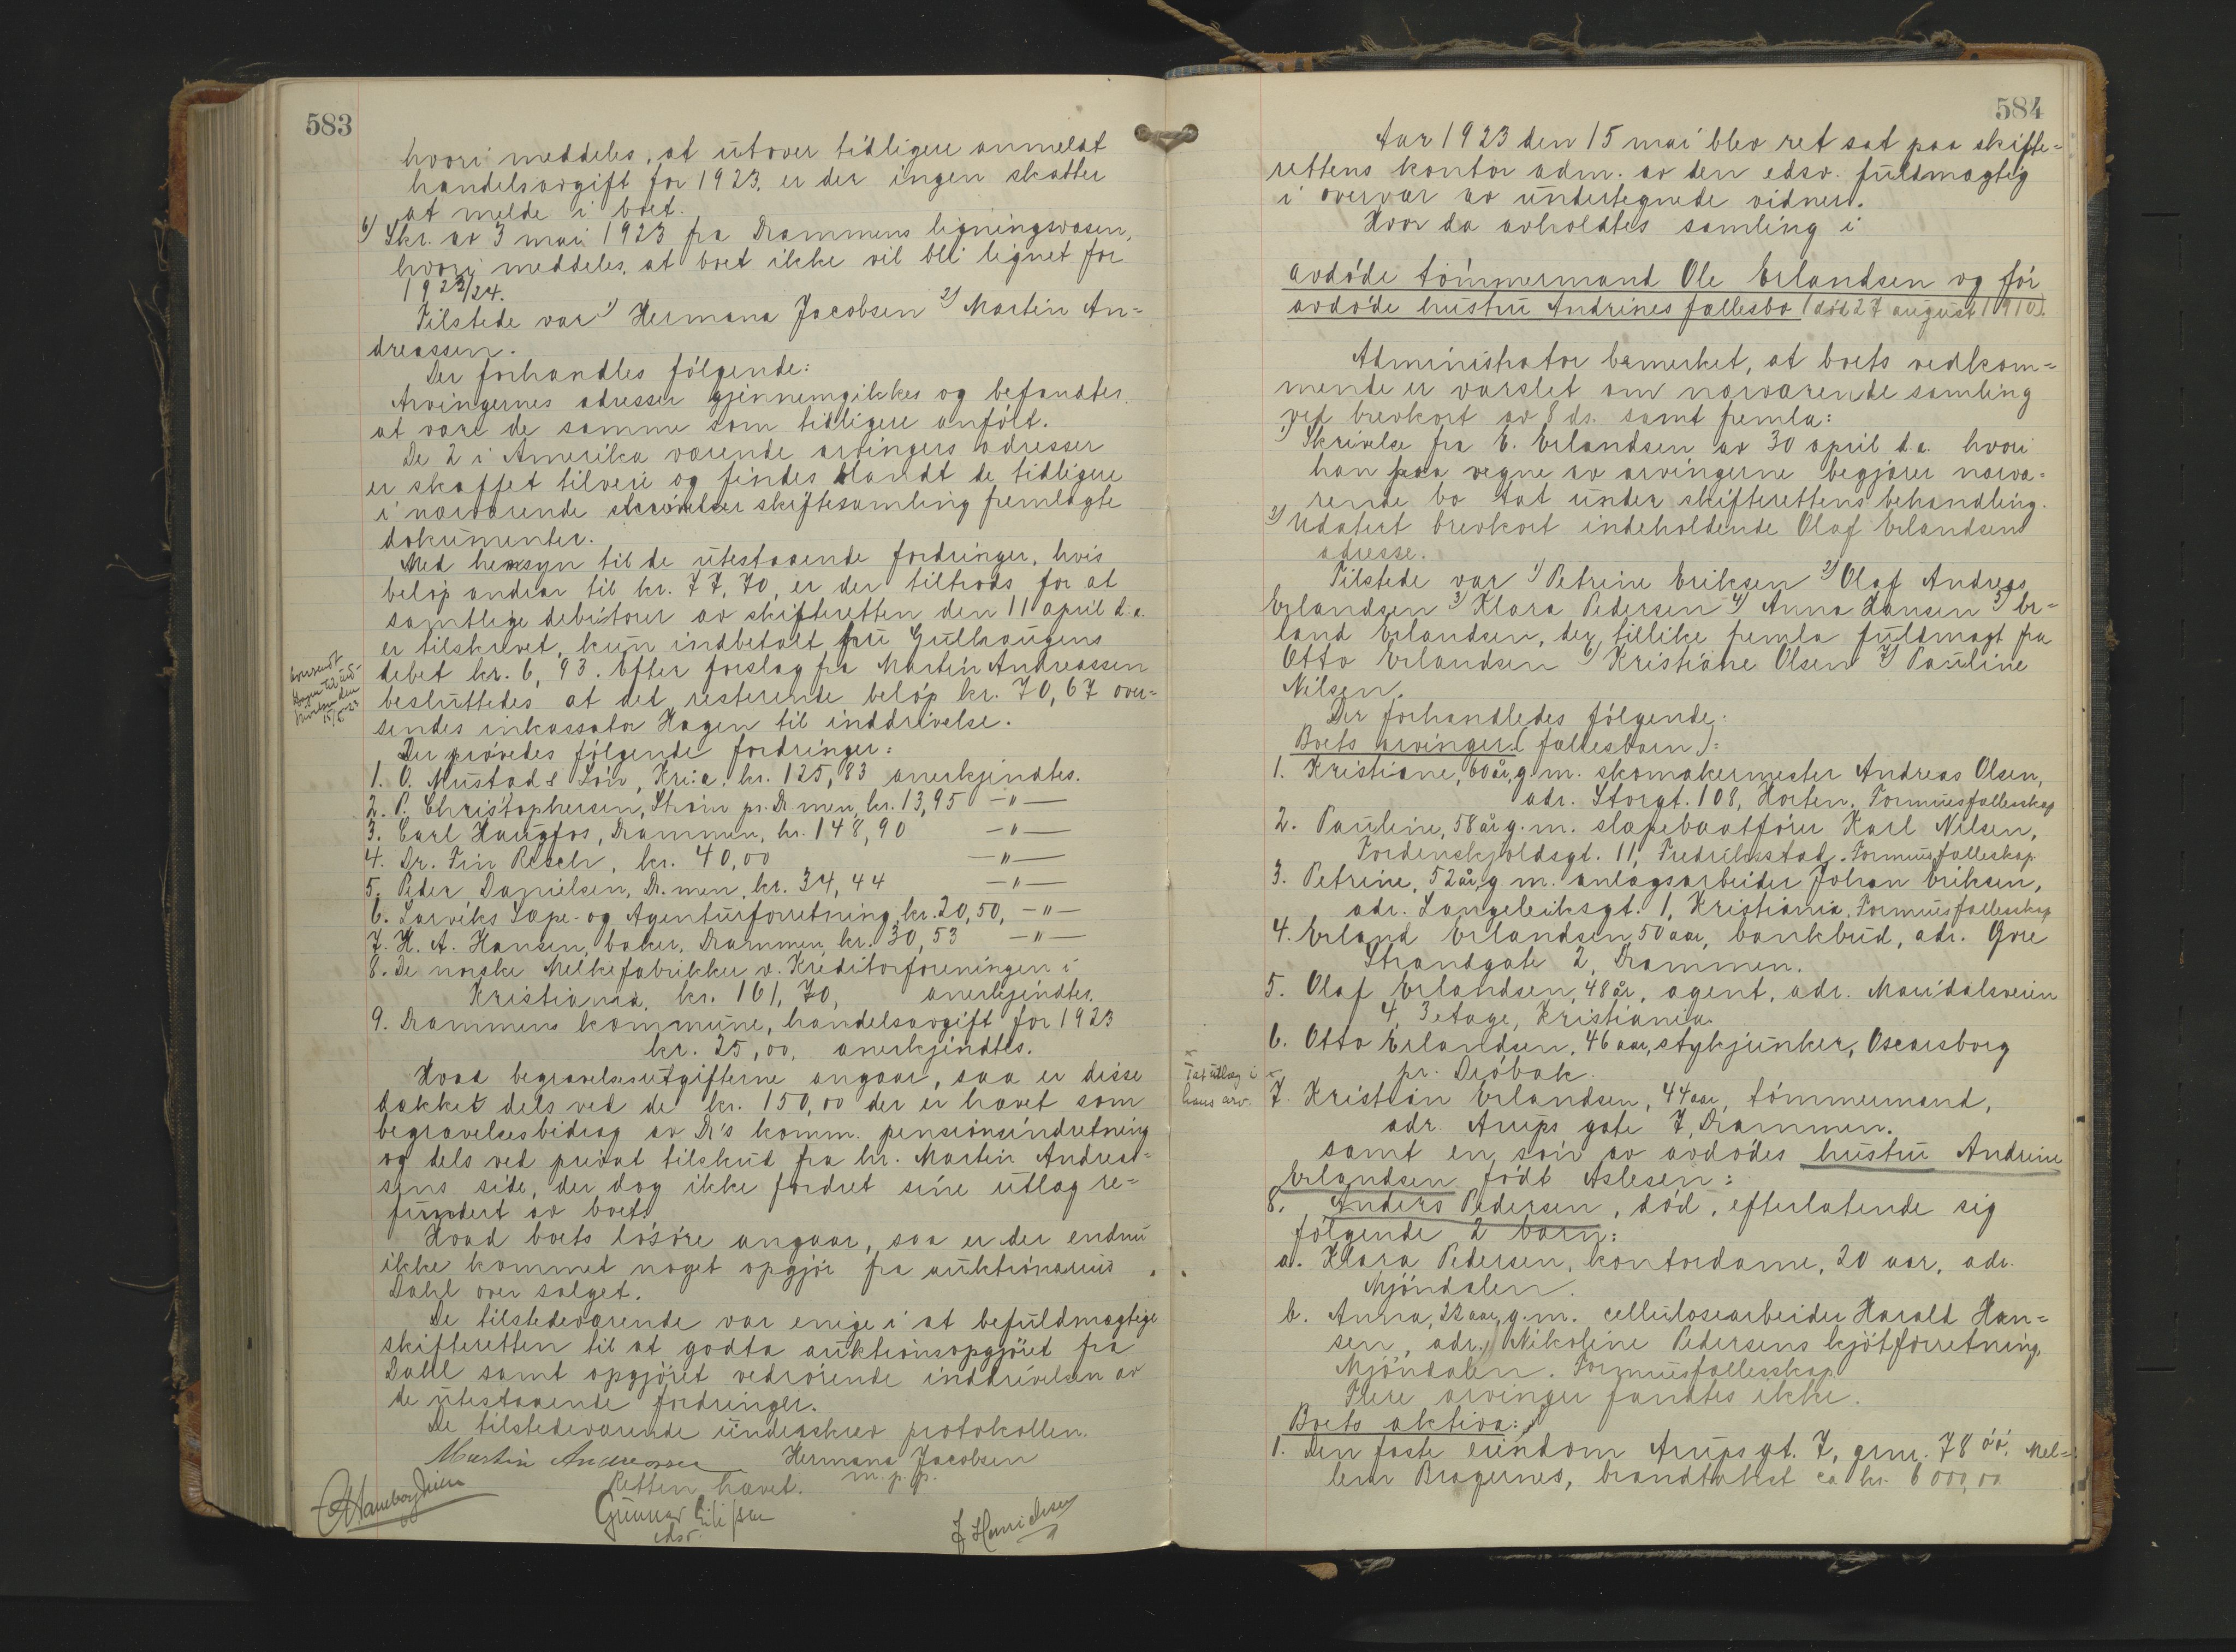 583
hvori meddeles, at utover tidligere anmeldt
handelsavgift for 1923, er der ingen skatter
at melde i boet.
6) Skr. av 3 mai 1923 fra Drammens ligningsvæsen,
hvori meddeles, at boet ikke vil bli lignet for
1923/24.
Tilstede var 1) Hermana Jacobsen 2) Martin An=
dreassen.
Der forhandles følgende:
Arvingernes adresser gjennemgikkes og befandtes
at være de samme som tidligere anført.
De 2 i Amerika værende arvingers adresser
er skaffet tilveie og findes blandt de tidligere
i nærværende skiftesamling fremlagte
dokumenter.
Med hensyn til de utestaaende fordringer, hvis
beløp andrar til kr. 77,70, er der tiltrods for at
samtlige debitorer av skifteretten den 11 april d.a.
er tilskrevet, kun indbetalt fru Gulhaugens
debet kr. 6,93. Efter forslag fra Martin Andreassen
besluttedes at det resterende beløp kr. 70,67 over=
sendes inkassator Hagen til inddrivelse.
Oversendt
Hagen til ind-
drivelse den
15/5-23
Der prøvedes følgende fordringer:
1. O. Mustad & Søn, Kr:a. kr. 125,83 anerkjendtes.
2. P. Christophersen, Strøm pr. Dr.men, kr. 13,95 —"—
3. Carl Haugfos, Drammen, kr. 148,90 —"—
4. Dr. Fin Resch, kr. 40,00 —"—
5. Peder Danielsen, Dr.men, kr. 34,44 —"—
6. Larviks Sæpe- og Agenturforretning, kr. 20,50, —"—
7. H. A. Hansen, baker, Drammen, kr. 30,53 —"—
8. De norske Melkefabrikker v. Kreditorforeningen i
Kristiania, kr. 161,70, anerkjendtes.
9. Drammens kommune, handelsavgift for 1923
kr. 25,00, anerkjendtes.
Hvad begravelsesutgifterne angaar, saa er disse
dækket dels ved de kr. 150,00 der er hævet som
begravelsesbidrag av Dr's komm. pensionsindretning
og dels ved privat tilskud fra hr. Martin Andreas=
sens side, der dog ikke fordret sine utlæg re=
fundert av boet.
Hvad boets løsøre angaar, saa er der endnu
ikke kommet noget opgjør fra auktionarius
Dahl over salget.
De tilstedeværende var enige i at befuldmægtige
skifteretten til at godta auktionsopgjøret fra
Dahl samt opgjøret vedrørende inddrivelsen av
de utestaaende fordringer.
De tilstedeværende underskrev protokollen.
Martin Andreassen Hermana Jacobsen
m. p. p.
Retten hævet.
Gunnar
edsv.
584
Aar 1923 den 15 mai blev ret sat paa skifte=
rettens kontor adm. av den edsv. fuldmægtig
i overvær av undertegnede vidner.
Hvor da avholdtes samling i
avdøde tømmermand Ole Erlandsen og før
avdøde hustru Andrines fællesbo (død 27 august 1910).
Administrator bemerket, at boets vedkom=
mende er varslet om nærværende samling
ved brevkort av 8 ds. samt fremla:
1) Skrivelse fra E. Erlandsen av 30 april d.a. hvori
han paa vegne av arvingerne begjærer nærvæ=
rende bo tat under skifterettens behandling.
2) Udatert brevkort indeholdende Olaf Erlandsens
adresse.
Tilstede var 1) Petrine Eriksen 2) Olaf Andreas
Erlandsen 3) Klara Pedersen 4) Anna Hansen 5) Er=
land Erlandsen, der tillike fremla fuldmagt fra
Otto Erlandsen 6) Kristiane Olsen 7) Pauline
Nilsen.
Der forhandledes følgende:
Boets arvinger (fællesbarn):
1. Kristiane, 60 år, g.m. skomakermester Andreas Olsen,
adr. Storgt. 108, Horten. Formuesfællesskap
2. Pauline, 58 år g.m. slæpebaatfører Karl Nilsen,
Tordenskjoldsgt. 11, Fredrikstad. Formuesfælleskap
3. Petrine, 52 år, g.m. anlægsarbeider Johan Eriksen,
adr. Langeleiksgt. 1, Kristiania, Formuesfællesskap
4. Erland Erlandsen, 50 aar, bankbud, adr. Øvre
Strandgate 2, Drammen.
5. Olaf Erlandsen, 48 år, agent, adr. Maridalsveien
4, 3 etage, Kristiania.
6. Otto Erlandsen, 46 aar, stykjunker, Oscarsborg
pr. Drøbak.
× Tat utlæg i
hans arv.
× 7. Kristian Erlandsen, 44 aar, tømmermand,
adr. Arups gate 7, Drammen.
samt en søn av avdødes hustru Andrine
Erlandsen født Aslesen:
8. Anders Pedersen, død, efterlatende sig
følgende 2 barn:
a. Klara Pedersen, kontordame, 20 aar, adr.
Mjøndalen.
b. Anna, 22 aar, g.m. cellulosearbeider Harald Han=
sen, adr. Nikoline Pedersens kjøtforretning,
Mjøndalen. Formuesfællesskap
Flere arvinger fandtes ikke.
Boets aktiva:
1. Den faste eiendom Arups gt. 7, grnr. 78 Mel=
lem Bragernes, brandtakst ca kr. 6000,00